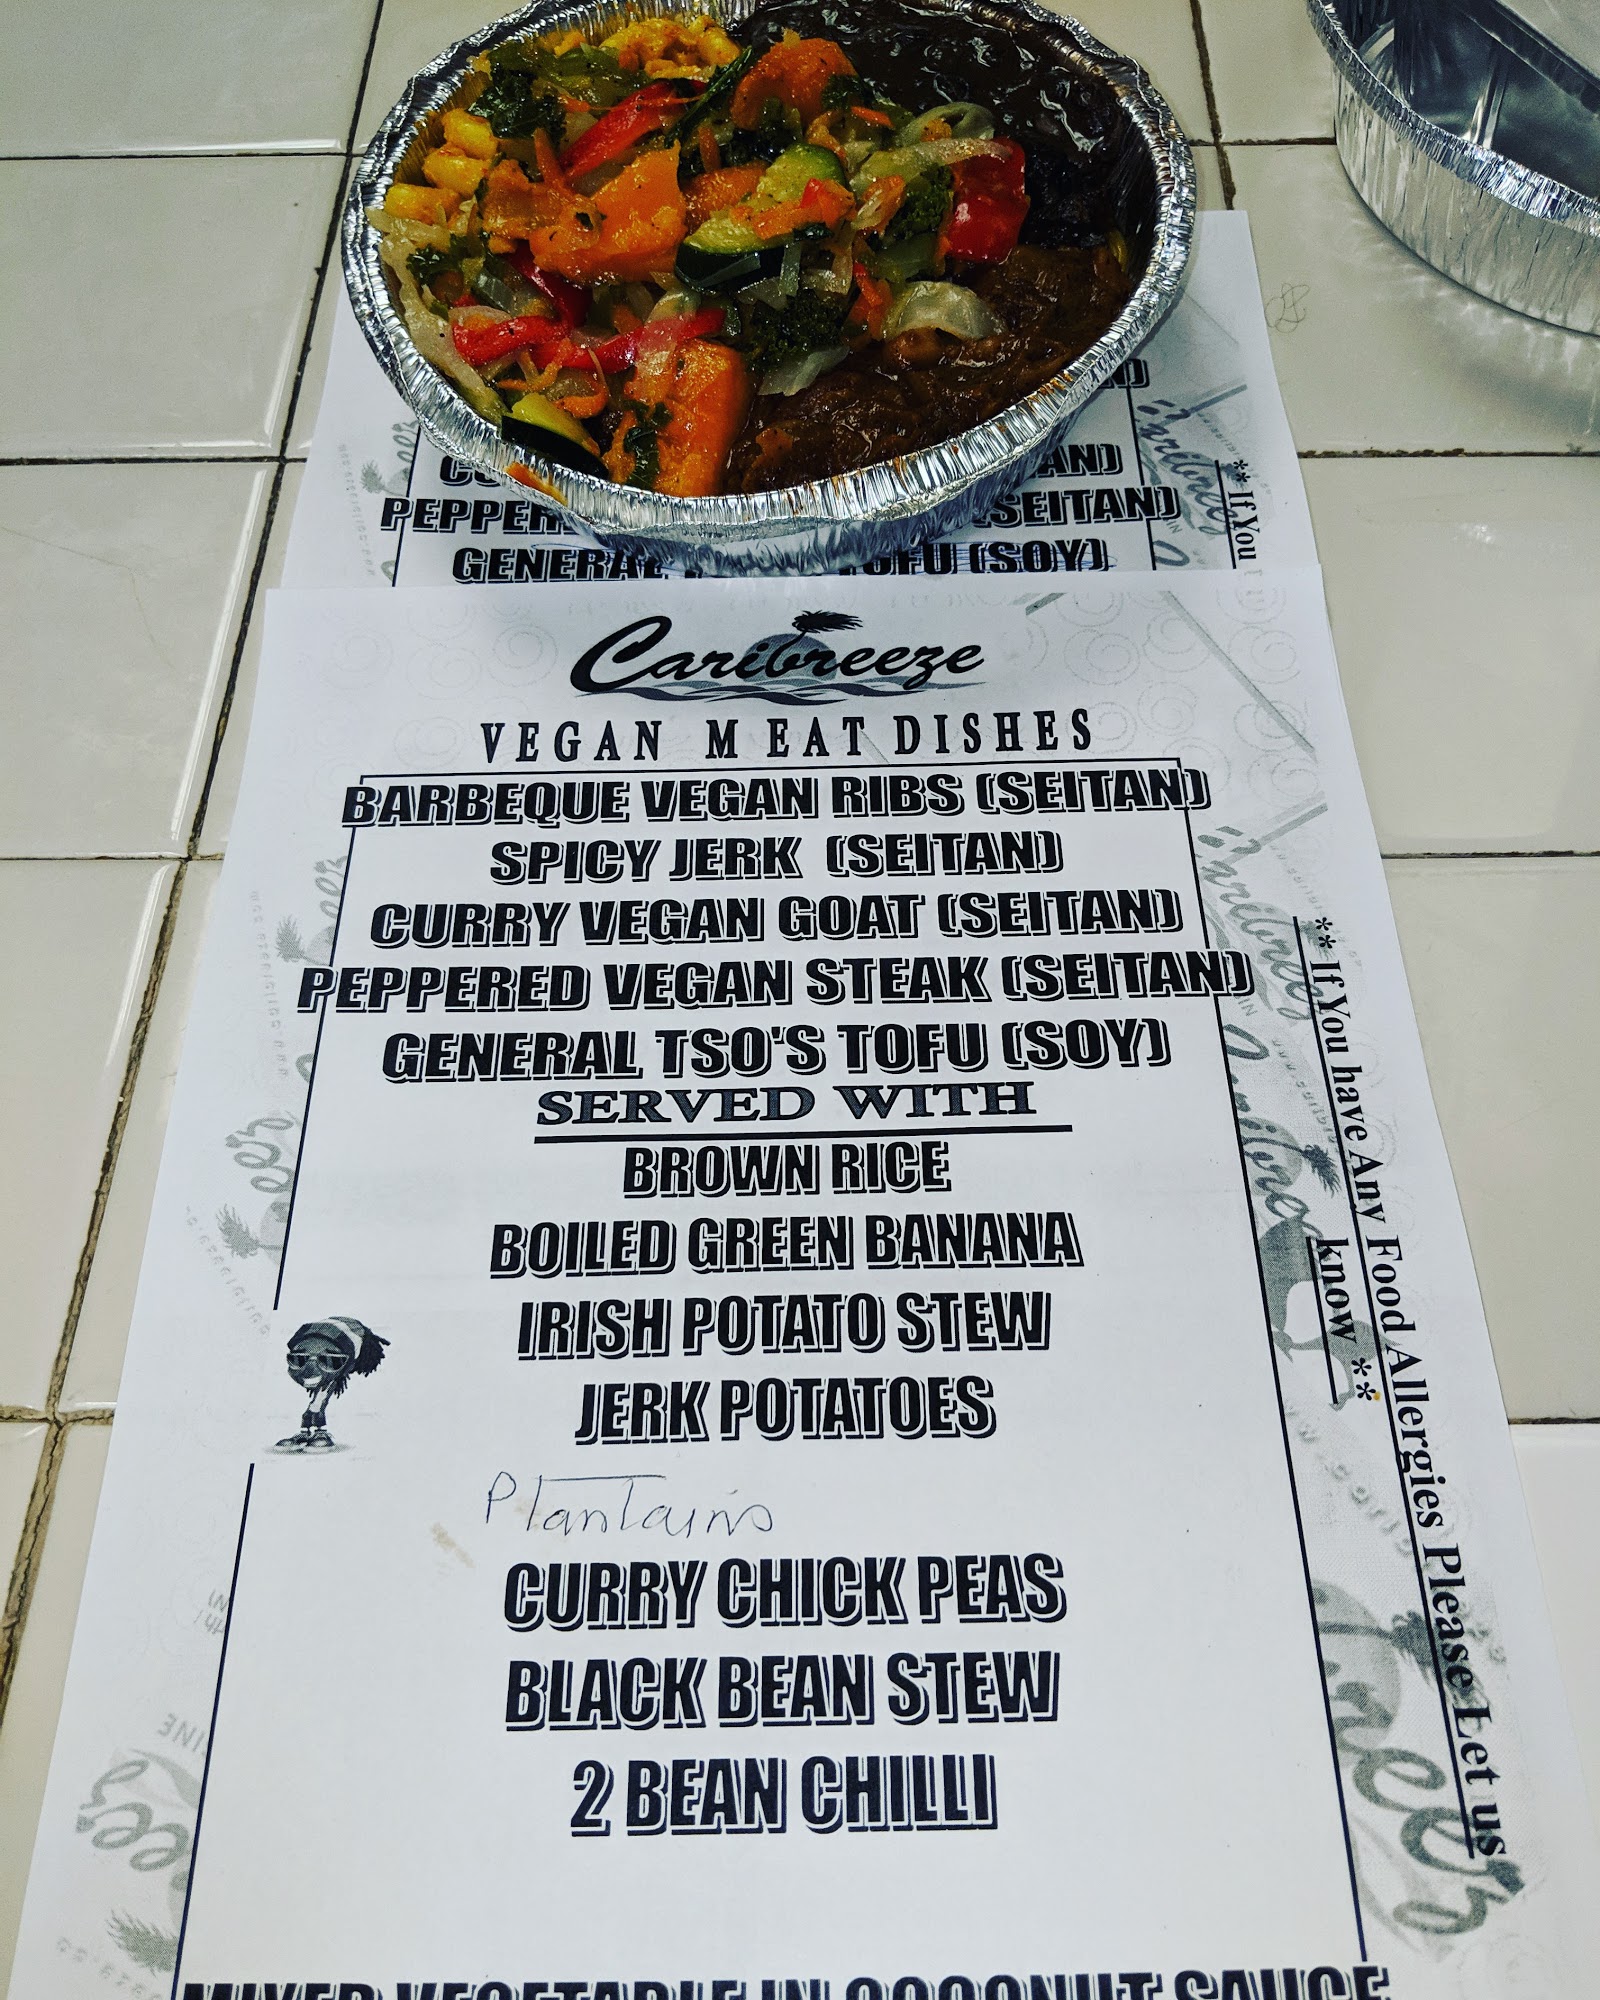 PEPPER
(SEITAN)
GENERAL TOFU (SOY)
** If You
Caribreeze
VEGAN MEAT DISHES
BARBEQUE VEGAN RIBS (SEITAN)
SPICY JERK (SEITAN)
CURRY VEGAN GOAT (SEITAN)
PEPPERED VEGAN STEAK (SEITAN)
GENERAL TSO'S TOFU (SOY)
SERVED WITH
BROWN RICE
BOILED GREEN BANANA
IRISH POTATO STEW
JERK POTATOES
Plantains
CURRY CHICK PEAS
BLACK BEAN STEW
2 BEAN CHILLI
MIXED VEGETABLE IN COCONUT SAUCE
** If You have Any Food Allergies Please Let us
know **